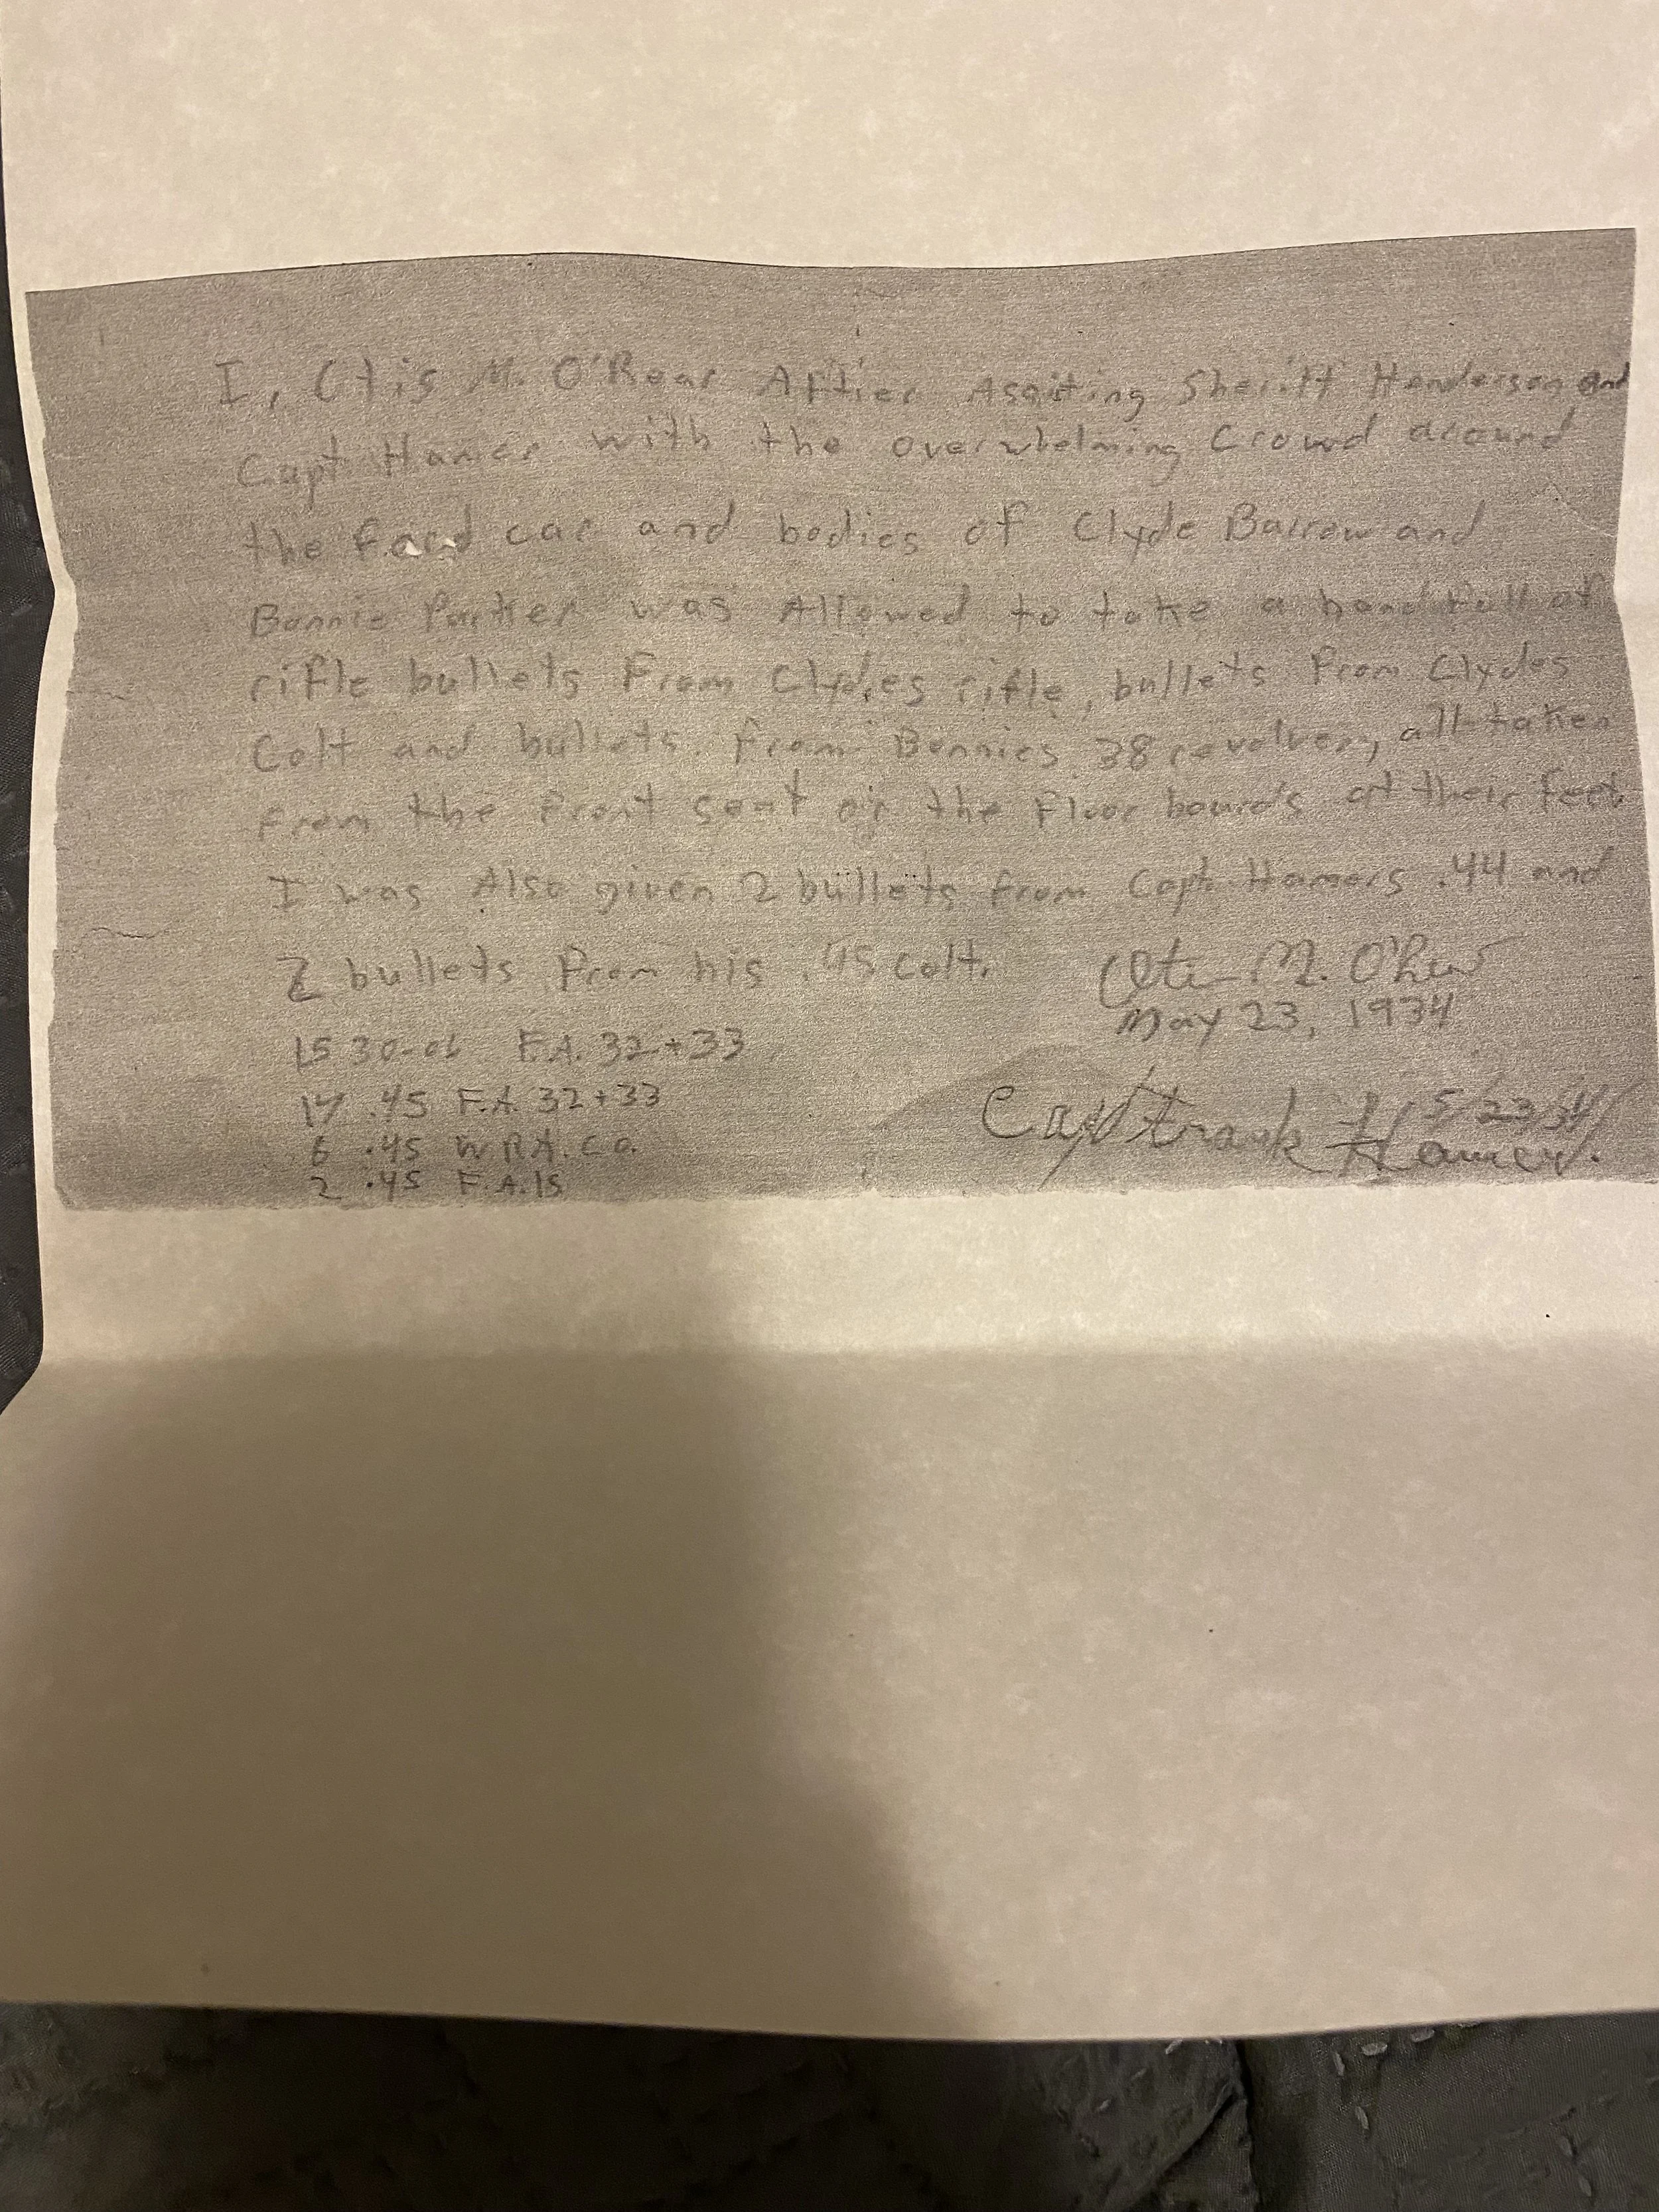 I, Otis M. O'Rear Aftier Assisting Sheriff Henderson and
Capt Hamer with the overwhelming Crowd around
the Ford car and bodies of Clyde Barrow and
Bonnie Parker was Allowed to take a handfull of
rifle bullets From Clydes rifle, bullets From Clydes
Colt and bullets from Bonnies 38 revolver, all taken
from the front seat or the Floor boards at their Feet.
I was Also given 2 bullets from Capt. Hamers .44 and
2 bullets From his .45 Colt. Otis M. O'Rear
May 23, 1934
15 30-06 F.A. 32+33
17 .45 F.A. 32+33
Capt Frank Hamer. 5/23/34
6 .45 W.R.A.Co.
2 .45 F.A.15